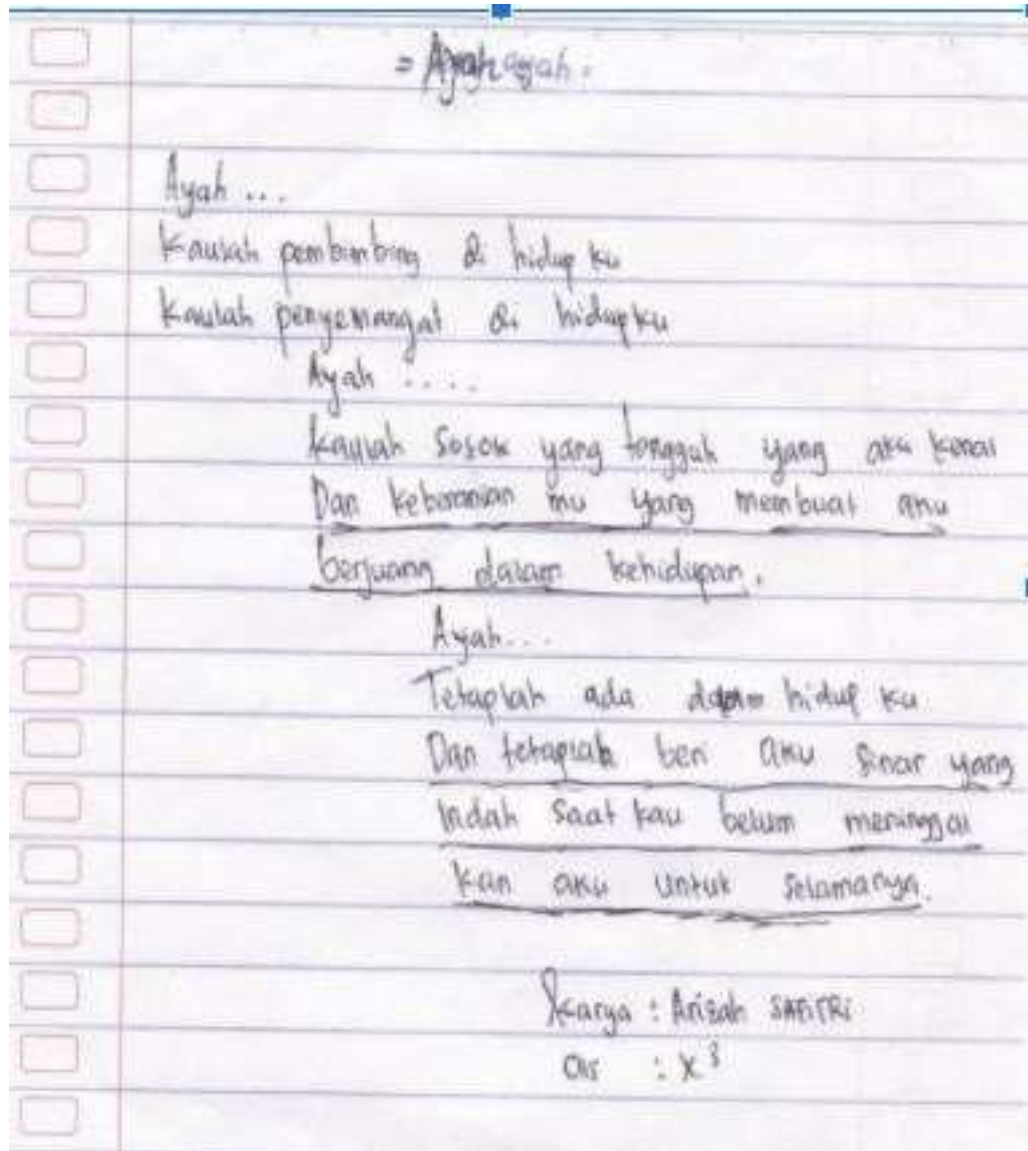 = Ayah ayah.
Ayah ...
Kaulah pembimbing di hidup ku
Kaulah penyemangat di hidupku
Ayah ....
Kaulah sosok yang tangguh yang aku kenal
Dan keberanian mu yang membuat aku
berjuang dalam kehidupan.
Ayah...
Tetaplah ada dalam hidup ku
Dan tetaplah beri aku sinar yang
indah saat kau belum meninggal
kan aku untuk selamanya.
Karya : Arizah SAFITRI
: X³